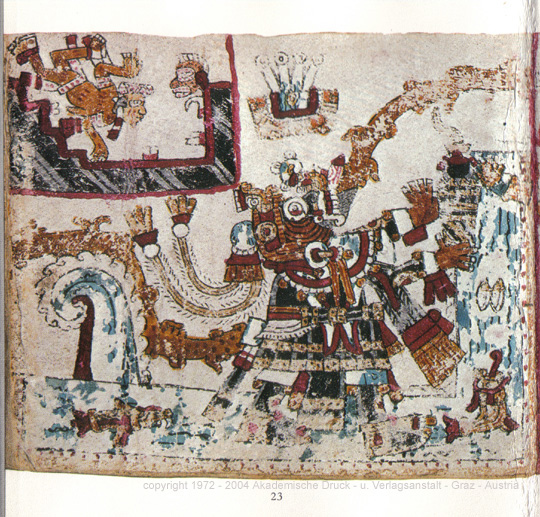 copyright 1972 - 2004 Akademische Druck - u. Verlagsanstalt - Graz - Austria
23